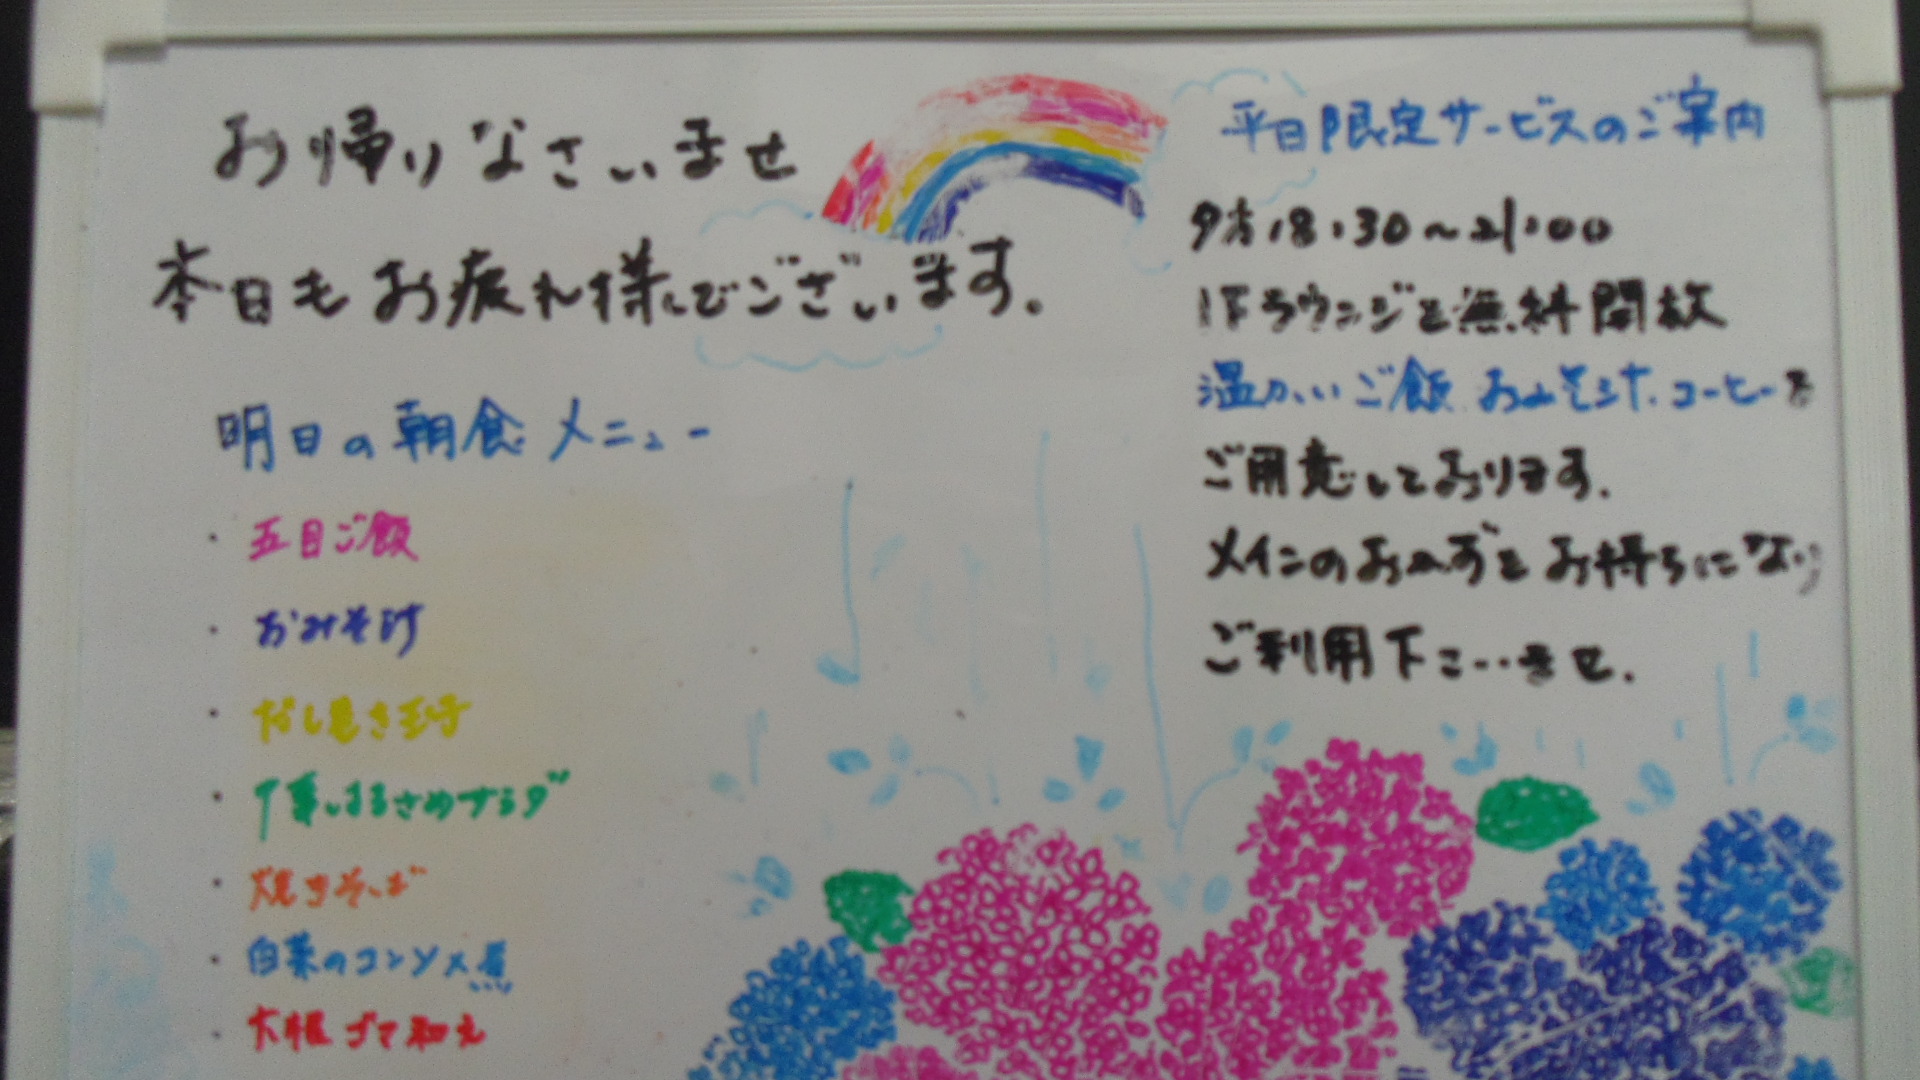 お帰りなさいませ
本日もお疲れ様でございます。
明日の朝食メニュー
・五目ご飯
・おみそ汁
・だし巻き玉子
・中華はるさめサラダ
・焼きそば
・白菜のコンソメ煮
・大根ゴマ和え
平日限定サービスのご案内
夕方18:30～21:00
1Fラウンジを無料開放
温かいご飯 おみそ汁.コーヒーを
ご用意しております.
メインのおかずをお持ちになり
ご利用下さいませ.